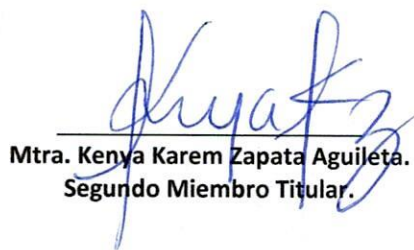 Mtra. Kenya Karem Zapata Aguileta.
Segundo Miembro Titular.